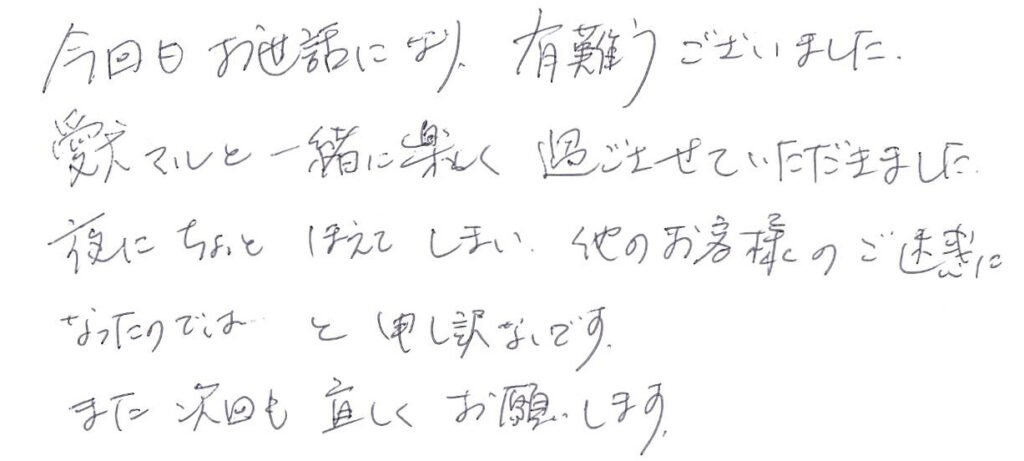 今回日お世話になり、有難うございました.
愛犬マルと一緒に楽しく過ごさせていただきました.
夜にちょっとほえてしまい、他のお客様のご迷惑に
なったのでは…と申し訳ないです.
また次回も宜しくお願いします.